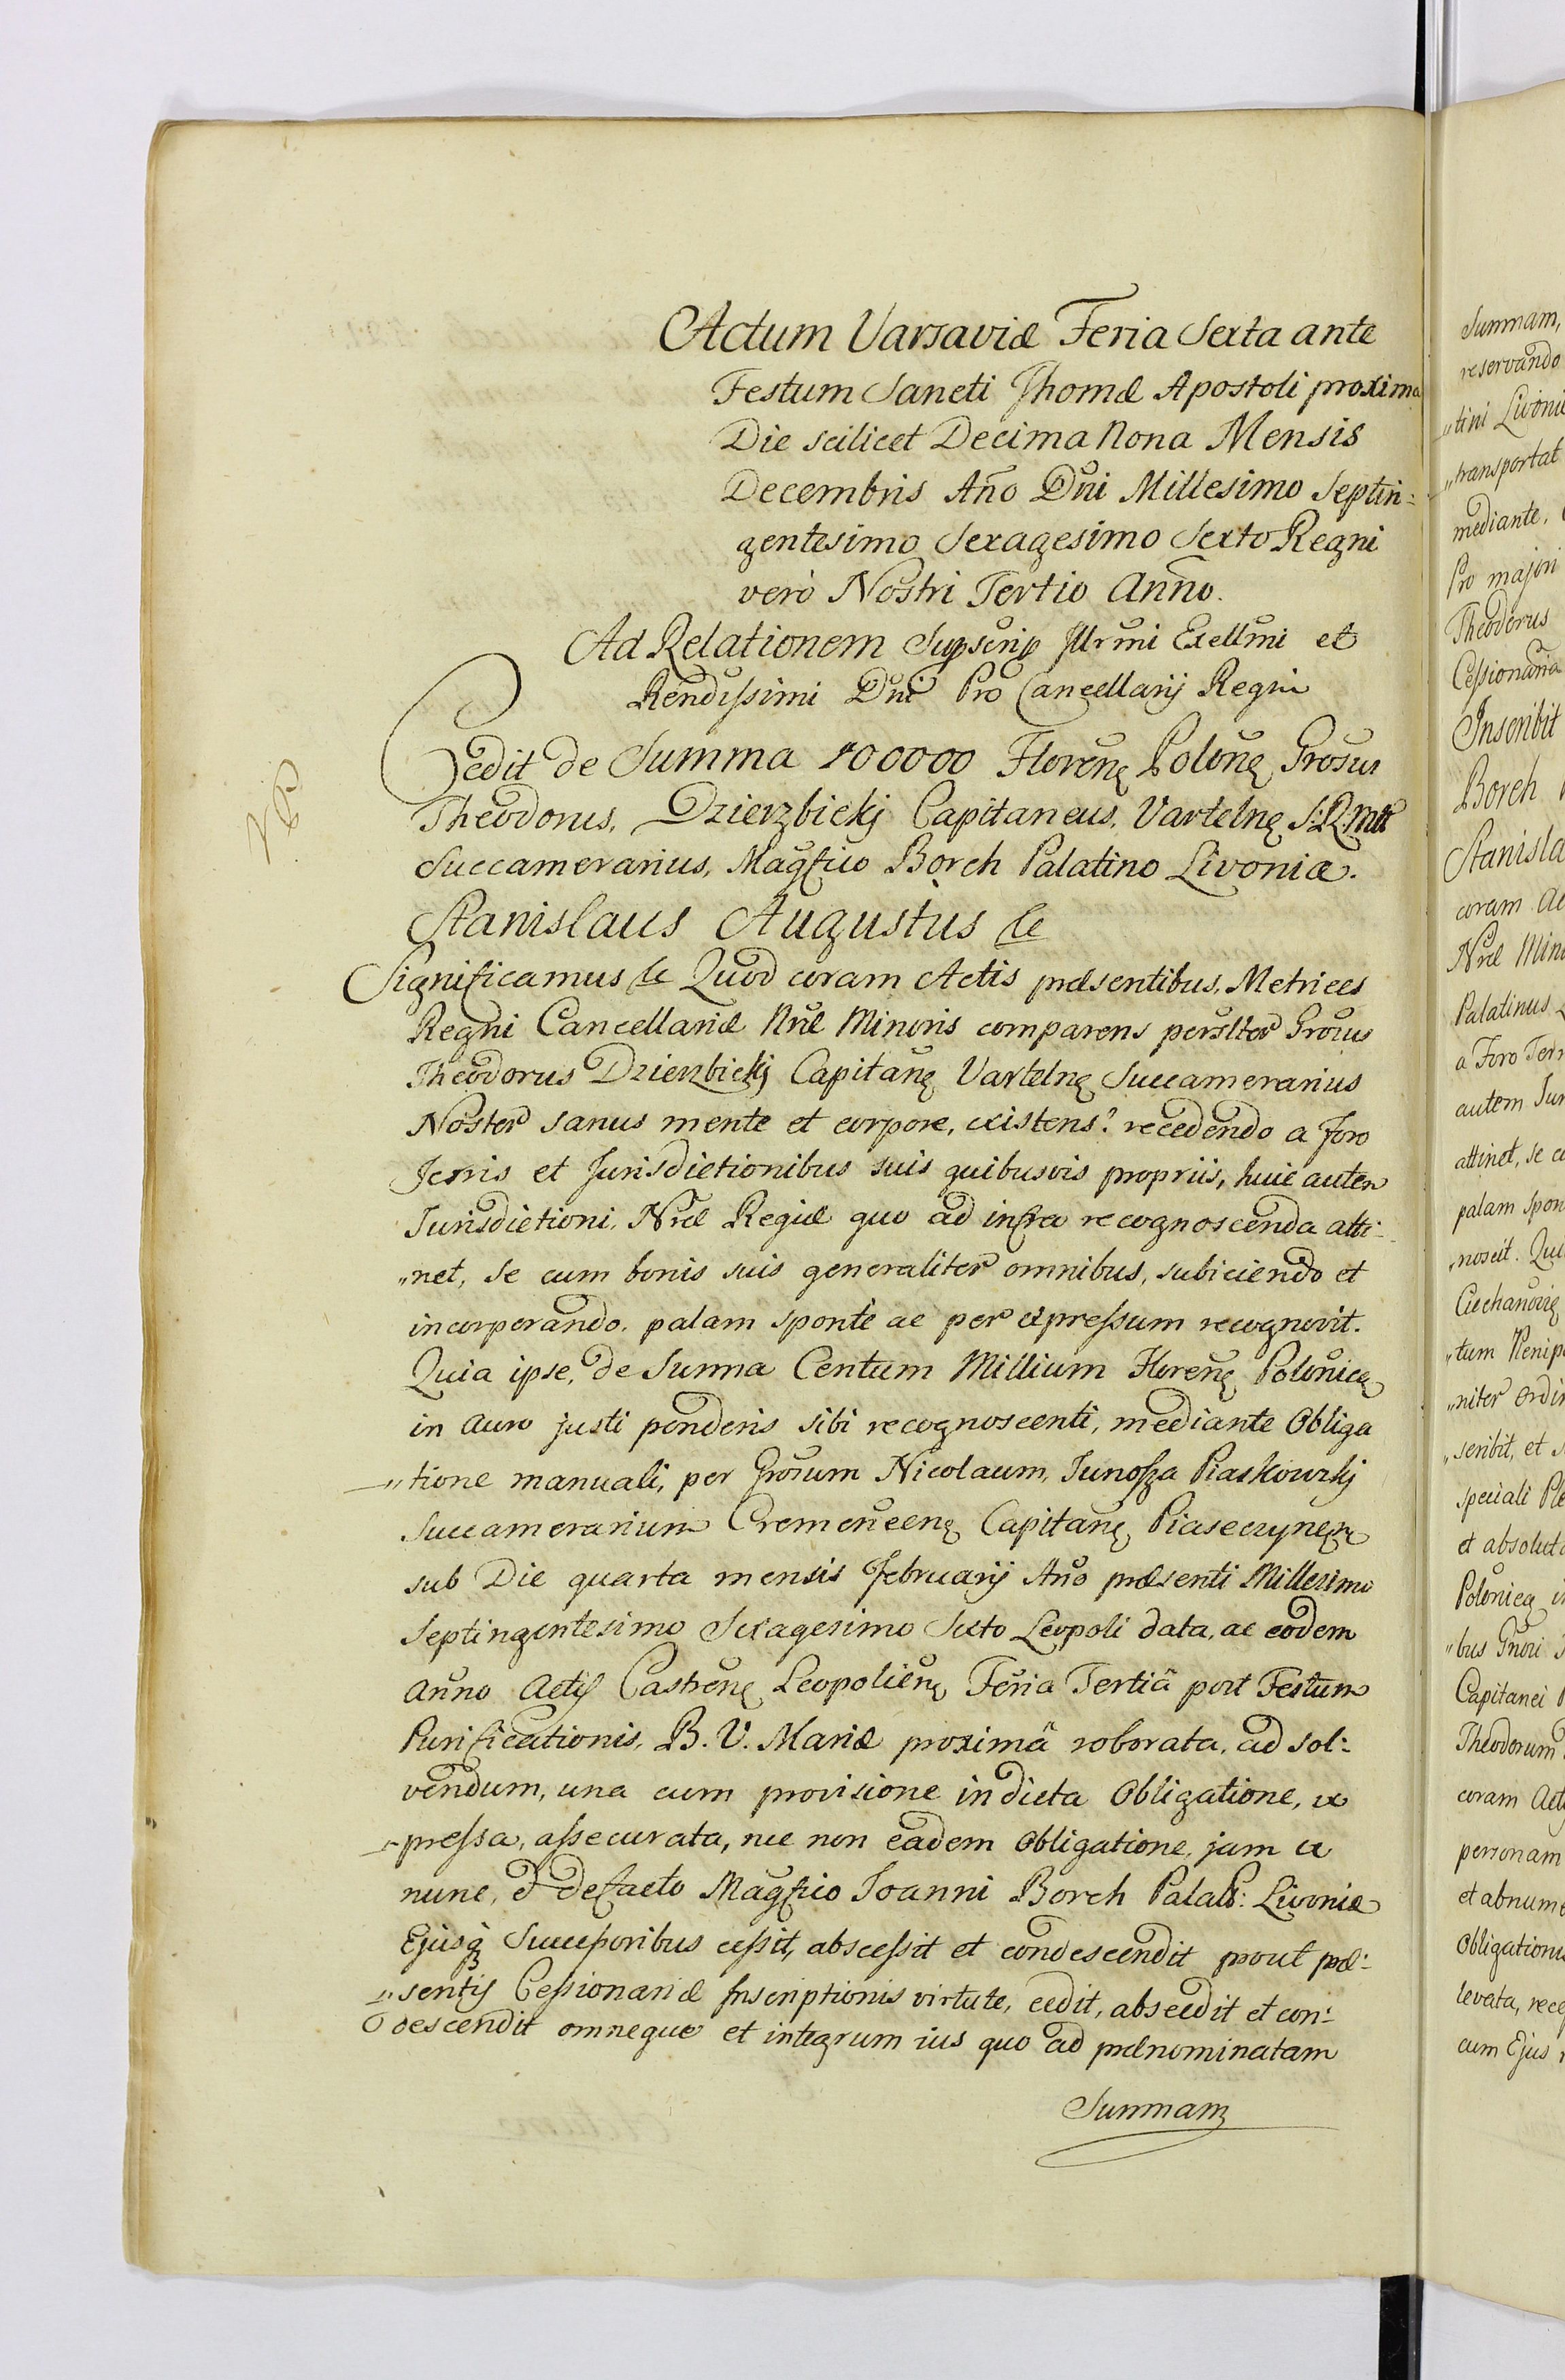 Actum Varsaviæ Feria Sexta ante
Festum Sancti Thomæ Apostoli proxima
Die scilicet Decima Nona Mensis
Decembris Año Dni Millesimo Septin:
gentesimo Sexagesimo Sexto Regni
verò Nostri Tertio Anno.
Ad Relationem Supscrip Illrmi Excellmi et
Rendissimi Dni Pro Cancellarij Regni
NB
Cedit de Summa 100000 Florenę Polonę Grosus
Theodorus, Dzierzbickj Capitaneus, Vartelnę S:R:Mtt
Succamerarius, Magfico Borch Palatino Livoniæ.
Stanislaus Augustus &c
Significamus &c Quod coram Actis præsentibus, Metrices
Regni Cancellariæ Nræ Minoris comparens perslter Grosus
Theodorus Dzierzbickj Capitanę Vartelnę Succamerarius
Noster sanus mente et corpore, existens: recedendo a foro
Terris et Jurisdictionibus suis quibusvis propriis, huic autem
Jurisdictioni, Nræ Regiæ quo ad infra recognoscenda atti:
„net, se cum bonis suis generaliter omnibus, subiciendo et
incorporando. palam sponte ac per expressum recognovit.
Quia ipse, de Summa Centum Millium Florenę Polonicę
in auro justi ponderis sibi recognoscenti, mediante Obliga
„tione manuali, per Grosum Nicolaum, Junosza Piaskowskj
Succamerarium Cremenecenę Capitanę Piaseczynen
sub Die quarta mensis februarij Año præsenti Millesimo
Septingentesimo Sexagesimo Sexto Leopoli data, ac eodem
anno Actis Castrenę Leopolienę Feria Tertiâ post Festum
Purificationis, B. V. Mariæ proximâ roborata, ad sol:
vendum, una cum provisione in dicta Obligatione, ex
„pressa, assecurata, nec non eadem Obligatione, jam ex
nunc, & de facto Magfico Joanni Borch Palat: Livoniæ
Ejusq Successoribus cessit, abscessit et condescendit prout præ:
„sentis Cessionariæ Inscriptionis virtute, cedit, abscedit et con:
descendit omneque et integrum ius quo ad prænominatam
Summam
Summam,
reservando
„tini Livoniæ
„transportat
mediante,
Pro majori
Theodorus
Cessionaria
Inscribit
Borch
Stanisla
coram Ac
Nræ Mino
Palatinus
a Foro Terr
autem Jur
attinet, se c
palam spon
„noscit. Qui
Ciechanovię
„tum Plenip
„niter ordin
„scribit, et
speciali Ple
et absoluta
Polonicę
„bus Gnosi
Capitanei
Theodorum
coram Act
personam
et abnume
Obligationis
levata, rece
cum Ejus